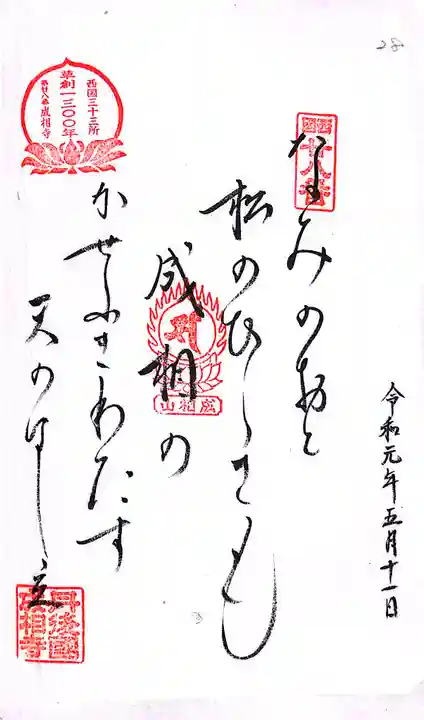 28
西国
廿八番
令和元年五月十一日
なみのおと
松のひゝきも
成相の
かせふきわたす
天のはし立
西国三十三所
草創一三〇〇年
第廿八番成相寺
成相山
丹後國
成相寺